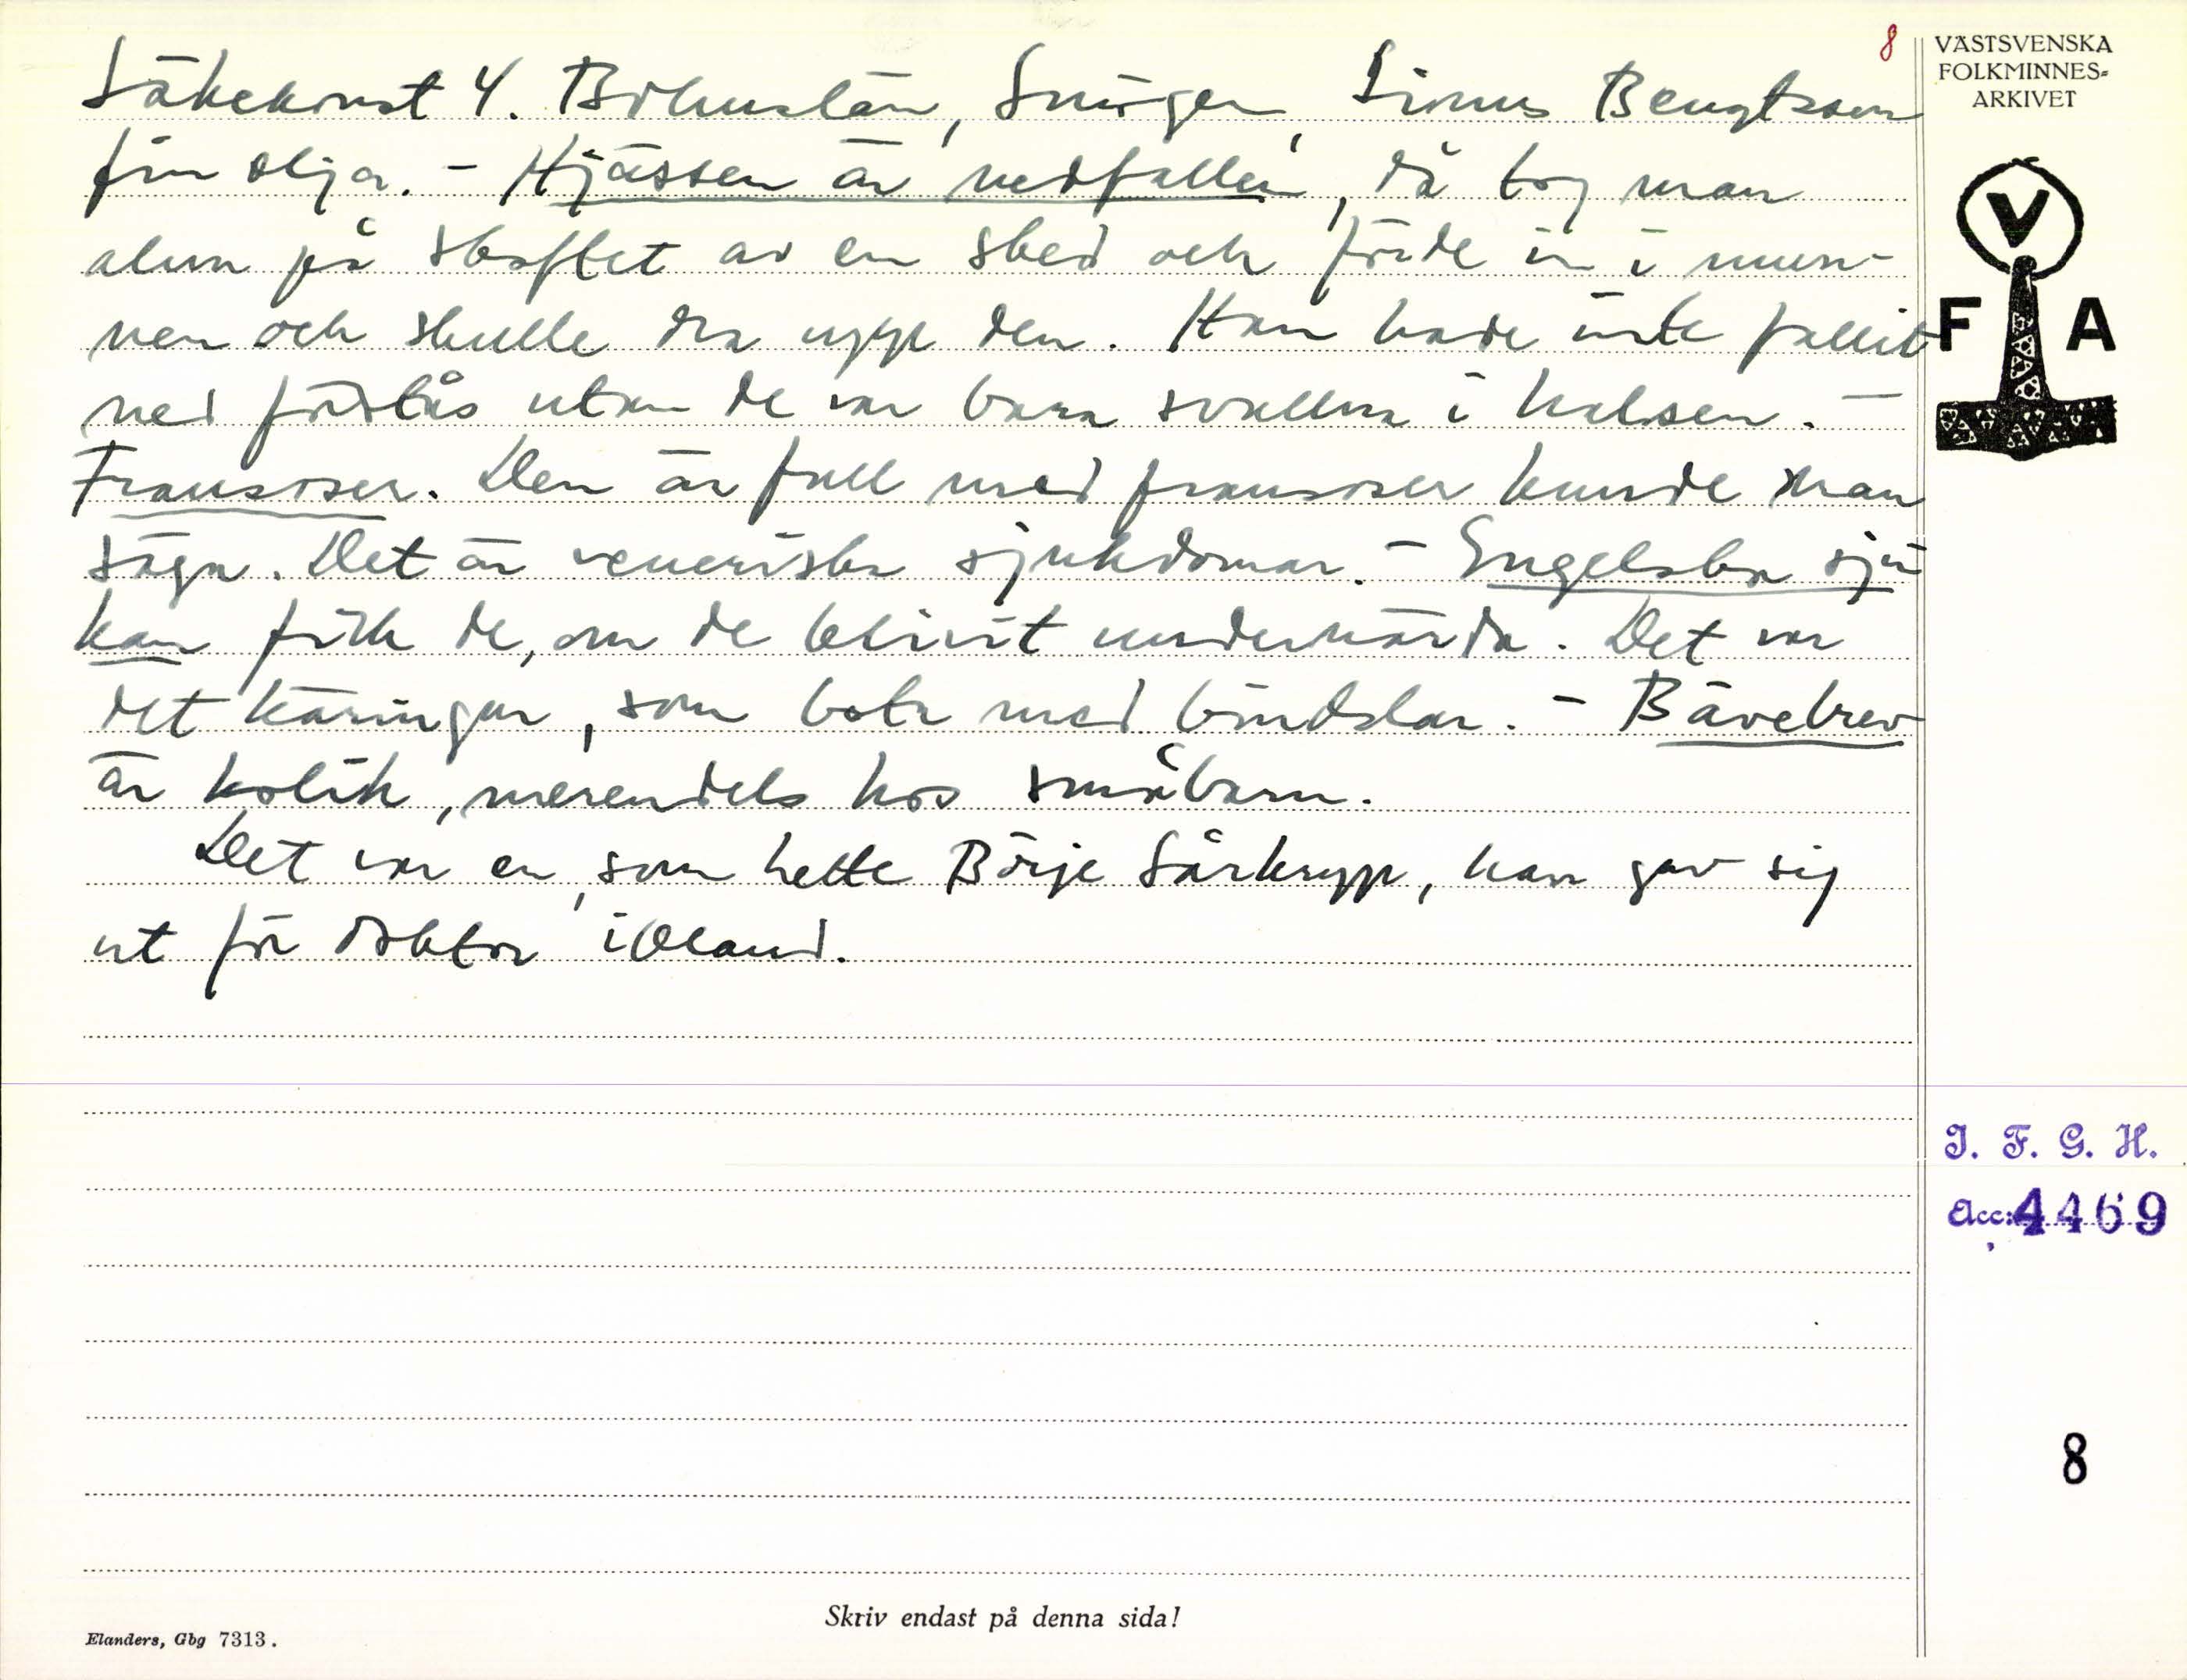 8
VÄSTSVENSKA
FOLKMINNES-
ARKIVET
Läkekonst 4. Bohuslän, Smögen, Linus Bengtsson
fin olja. - Hjässen är nedfallen, då tog man
alun på skaftet av en sked och förde in i mun-
nen och skulle dra upp den. Han hade inte fallit
ned förstås utan de var bara svullna i halsen. -
Fransoser. Den är full med fransoser kunde man
säga. Det är veneriska sjukdomar. - Engelska sju
kan fick de, om de blivit undernärda. Det var
det käringar, som bota med bindslar. - Bävebrev
är kolik, merendels hos småbarn.
Det var en, som hette Börje Sårkrypp, han gav sig
ut för doktor i Oland.
V
F A
I. F. G. H.
Acc: 4469
8
Skriv endast på denna sida!
Elanders, Gbg 7313.